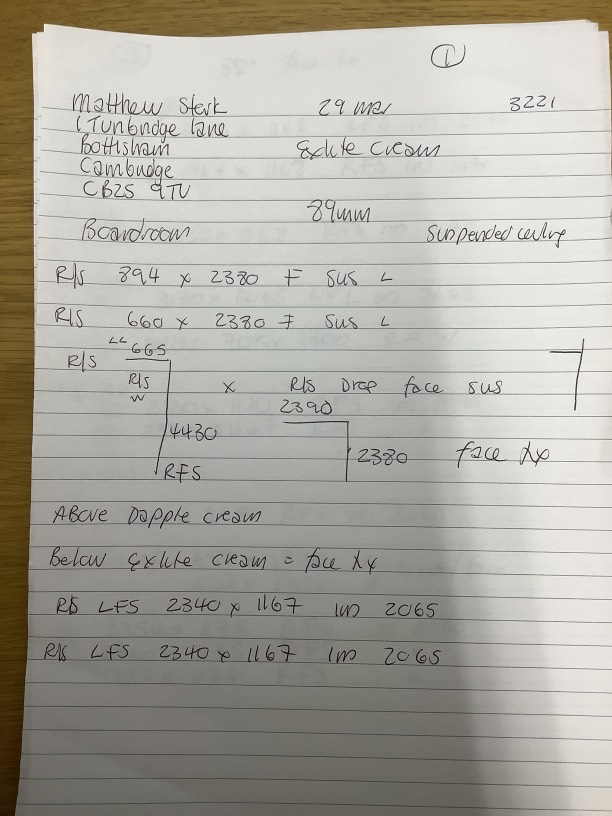 1
Matthew Sterk 29 mar 3221
1 Tunbridge lane
Bottisham Exlite cream
Cambridge
CB25 9TU
89mm
Boardroom Suspended ceiling
R/S 894 x 2380 F SUS L
R/S 660 x 2380 F SUS L
R/S LL 665
R/S W x R/S Drop face sus
2390
4430 2380 face
RFS
Above Dapple cream
Below Exlite cream = face
R/S LFS 2340 x 1167 1m 2065
R/S LFS 2340 x 1167 1m 2065